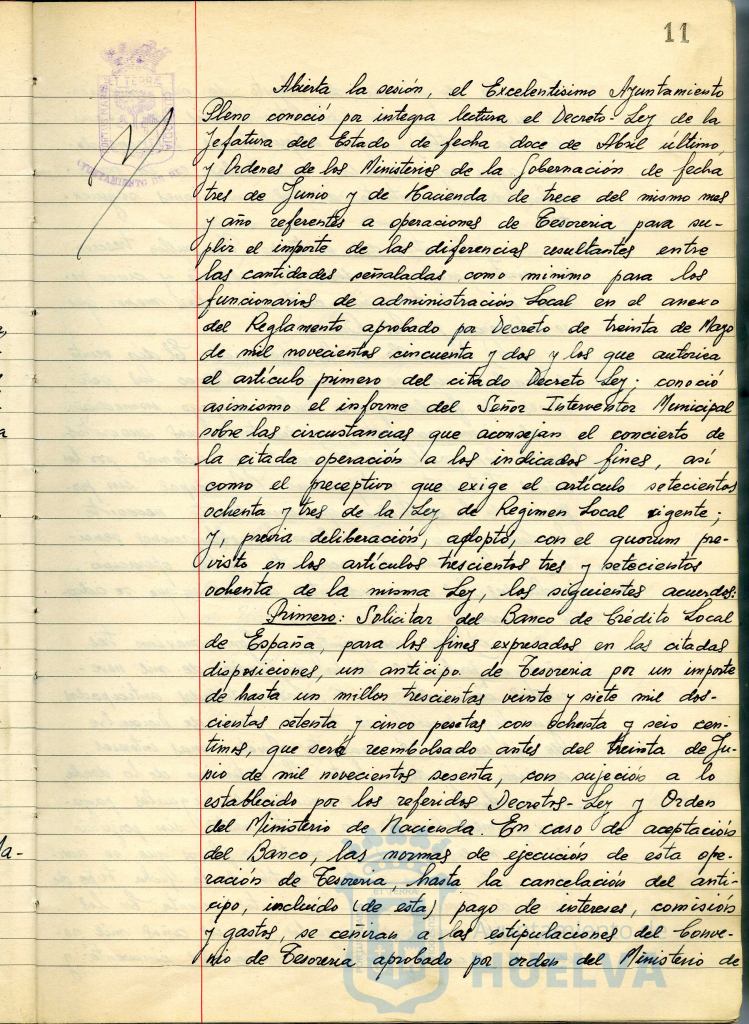 11
Abierta la sesión, el Excelentísimo Ayuntamiento
Pleno conoció por integra lectura el Decreto-Ley de la
Jefatura del Estado de fecha doce de Abril último,
y Ordenes de los Ministerios de la Gobernación de fecha
tres de Junio y de Hacienda de trece del mismo mes
y año referentes a operaciones de Tesoreria para su-
plir el importe de las diferencias resultantes entre
las cantidades señaladas como minimo para los
funcionarios de administración Local en el anexo
del Reglamento aprobado por Decreto de treinta de Mayo
de mil novecientos cincuenta y dos y los que autoriza
el artículo primero del citado Decreto Ley; conoció
asimismo el informe del Señor Interventor Municipal
sobre las circustancias que aconsejan el concierto de
la citada operación a los indicados fines, así
como el preceptivo que exige el artículo setecientos
ochenta y tres de la Ley de Regimen Local vigente;
y, previa deliberación, adoptó, con el quorum pre-
visto en los artículos trescientos tres y setecientos
ochenta de la misma Ley, los siguientes acuerdos:
Primero: Solicitar del Banco de Crédito Local
de España, para los fines expresados en las citadas
disposiciones, un anticipo de Tesoreria por un importe
de hasta un millon trescientas veinte y siete mil dos-
cientas setenta y cinco pesetas con ochenta y seis cen-
timos, que será reembolsado antes del treinta de Ju-
nio de mil novecientos sesenta, con sujeción a lo
establecido por los referidos Decretos-Ley y Orden
del Ministerio de Hacienda. En caso de aceptación
del Banco, las normas de ejecución de esta ope-
ración de Tesoreria, hasta la cancelación del anti-
cipo, incluido (de esta) pago de intereses, comisión
y gastos, se ceñiran a las estipulaciones del Conve-
nio de Tesoreria aprobado por orden del Ministerio de
Ayuntamiento de
HUELVA